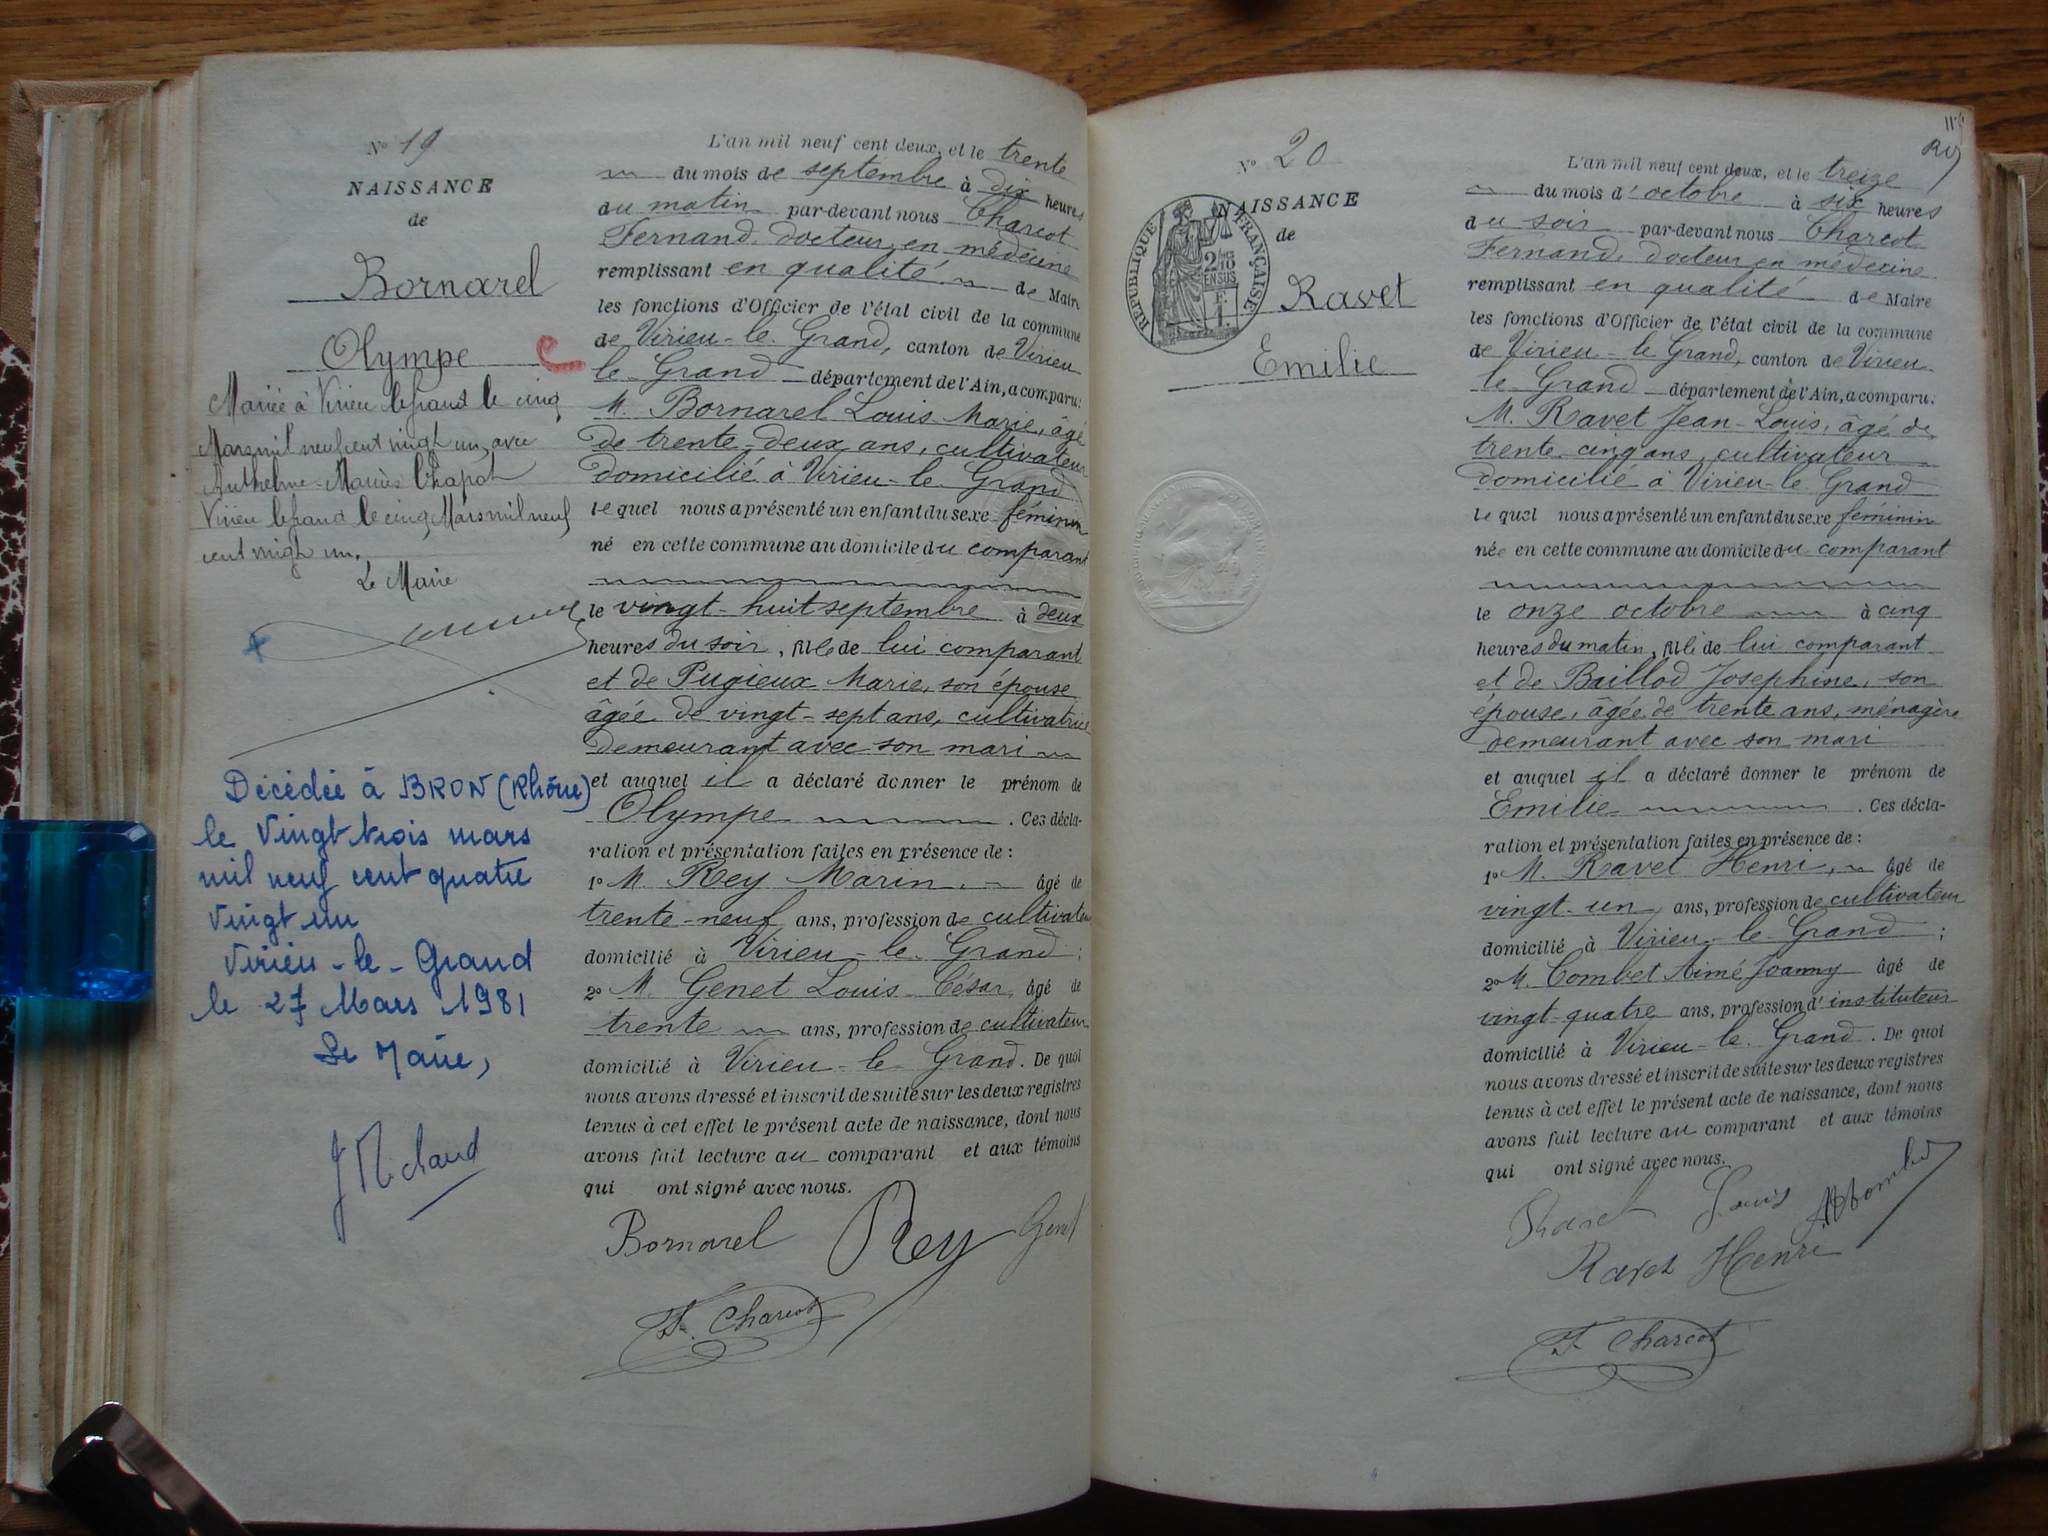 Nº 19
NAISSANCE
de
Bornarel
Olympe
Mariée à Virieu le grand le cinq
Mars mil neuf cent vingt un, avec
Anthelme Marius Chapot
Virieu le grand le cinq Mars mil neuf
cent vingt un.
Le Maire
Décédée à BRON (Rhône)
le Vingt trois mars
mil neuf cent quatre
vingt un
Virieu-le-Grand
le 27 Mars 1981
Le Maire,
J Michaud
L'an mil neuf cent deux, et le trente
du mois de septembre à dix heures
du matin par-devant nous Charcot
Fernand, docteur en médecine
remplissant en qualité de Maire
les fonctions d'Officier de l'état civil de la commune
de Virieu-le-Grand, canton de Virieu
le-Grand département de l'Ain, a comparu:
M. Bornarel Louis Marie, âgé
de trente-deux ans, cultivateur
domicilié à Virieu-le-Grand
lequel nous a présenté un enfant du sexe féminin
né en cette commune au domicile du comparant
le vingt-huit septembre à deux
heures du soir, fille de lui comparant
et de Pugieux Marie, son épouse
âgée de vingt-sept ans, cultivatrice
demeurant avec son mari
et auquel il a déclaré donner le prénom de
Olympe . Ces décla-
ration et présentation faites en présence de :
1º M. Rey Marin, âgé de
trente-neuf ans, profession de cultivateur
domicilié à Virieu-le-Grand ;
2º M. Genet Louis César, âgé de
trente ans, profession de cultivateur
domicilié à Virieu-le-Grand. De quoi
nous avons dressé et inscrit de suite sur les deux registres
tenus à cet effet le présent acte de naissance, dont nous
avons fait lecture au comparant et aux témoins
qui ont signé avec nous.
Bornarel Rey Genet
F. Charcot
Nº 20
NAISSANCE
de
RÉPUBLIQUE FRANÇAISE
EN SUS
Ravet
Emilie
L'an mil neuf cent deux, et le treize
du mois d'octobre à six heures
du soir par-devant nous Charcot
Fernand, docteur en médecine
remplissant en qualité de Maire
les fonctions d'Officier de l'état civil de la commune
de Virieu-le-Grand, canton de Virieu
le-Grand département de l'Ain, a comparu:
M. Ravet Jean-Louis, âgé de
trente cinq ans, cultivateur
domicilié à Virieu-le-Grand
lequel nous a présenté un enfant du sexe féminin
née en cette commune au domicile du comparant
le onze octobre à cinq
heures du matin, fille de lui comparant
et de Baillod Josephine, son
épouse, âgée de trente ans, ménagère
demeurant avec son mari
et auquel il a déclaré donner le prénom de
Emilie . Ces décla-
ration et présentation faites en présence de :
1º M. Ravet Henri, âgé de
vingt-un ans, profession de cultivateur
domicilié à Virieu-le-Grand ;
2º M. Combet Aimé Joanny âgé de
vingt-quatre ans, profession d'instituteur
domicilié à Virieu-le-Grand. De quoi
nous avons dressé et inscrit de suite sur les deux registres
tenus à cet effet le présent acte de naissance, dont nous
avons fait lecture au comparant et aux témoins
qui ont signé avec nous.
Louis
Ravet Henri
F. Charcot